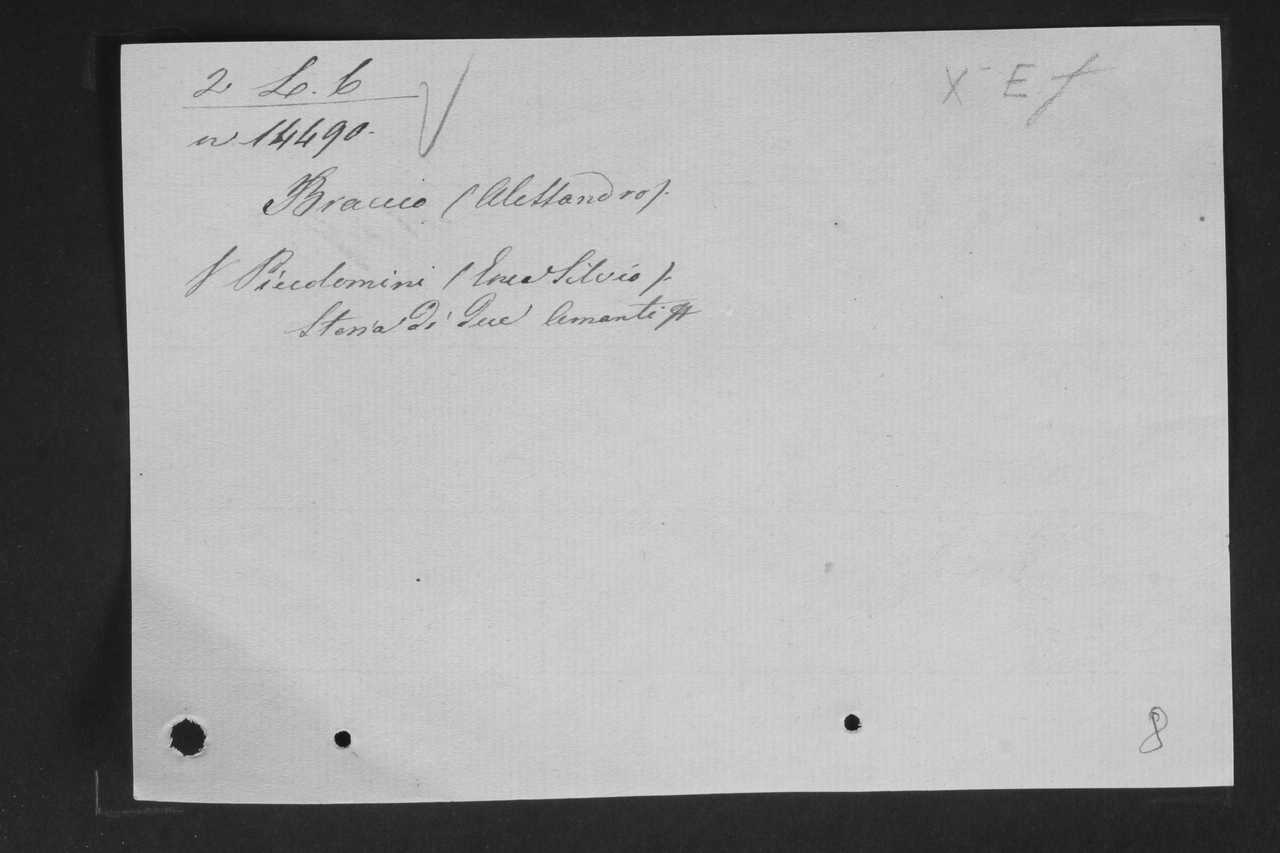 2 L. 6
X E f
n 14490.
Braccio (Alessandro).
V Piccolomini (Enea Silvio).
Storia di due Amanti
8